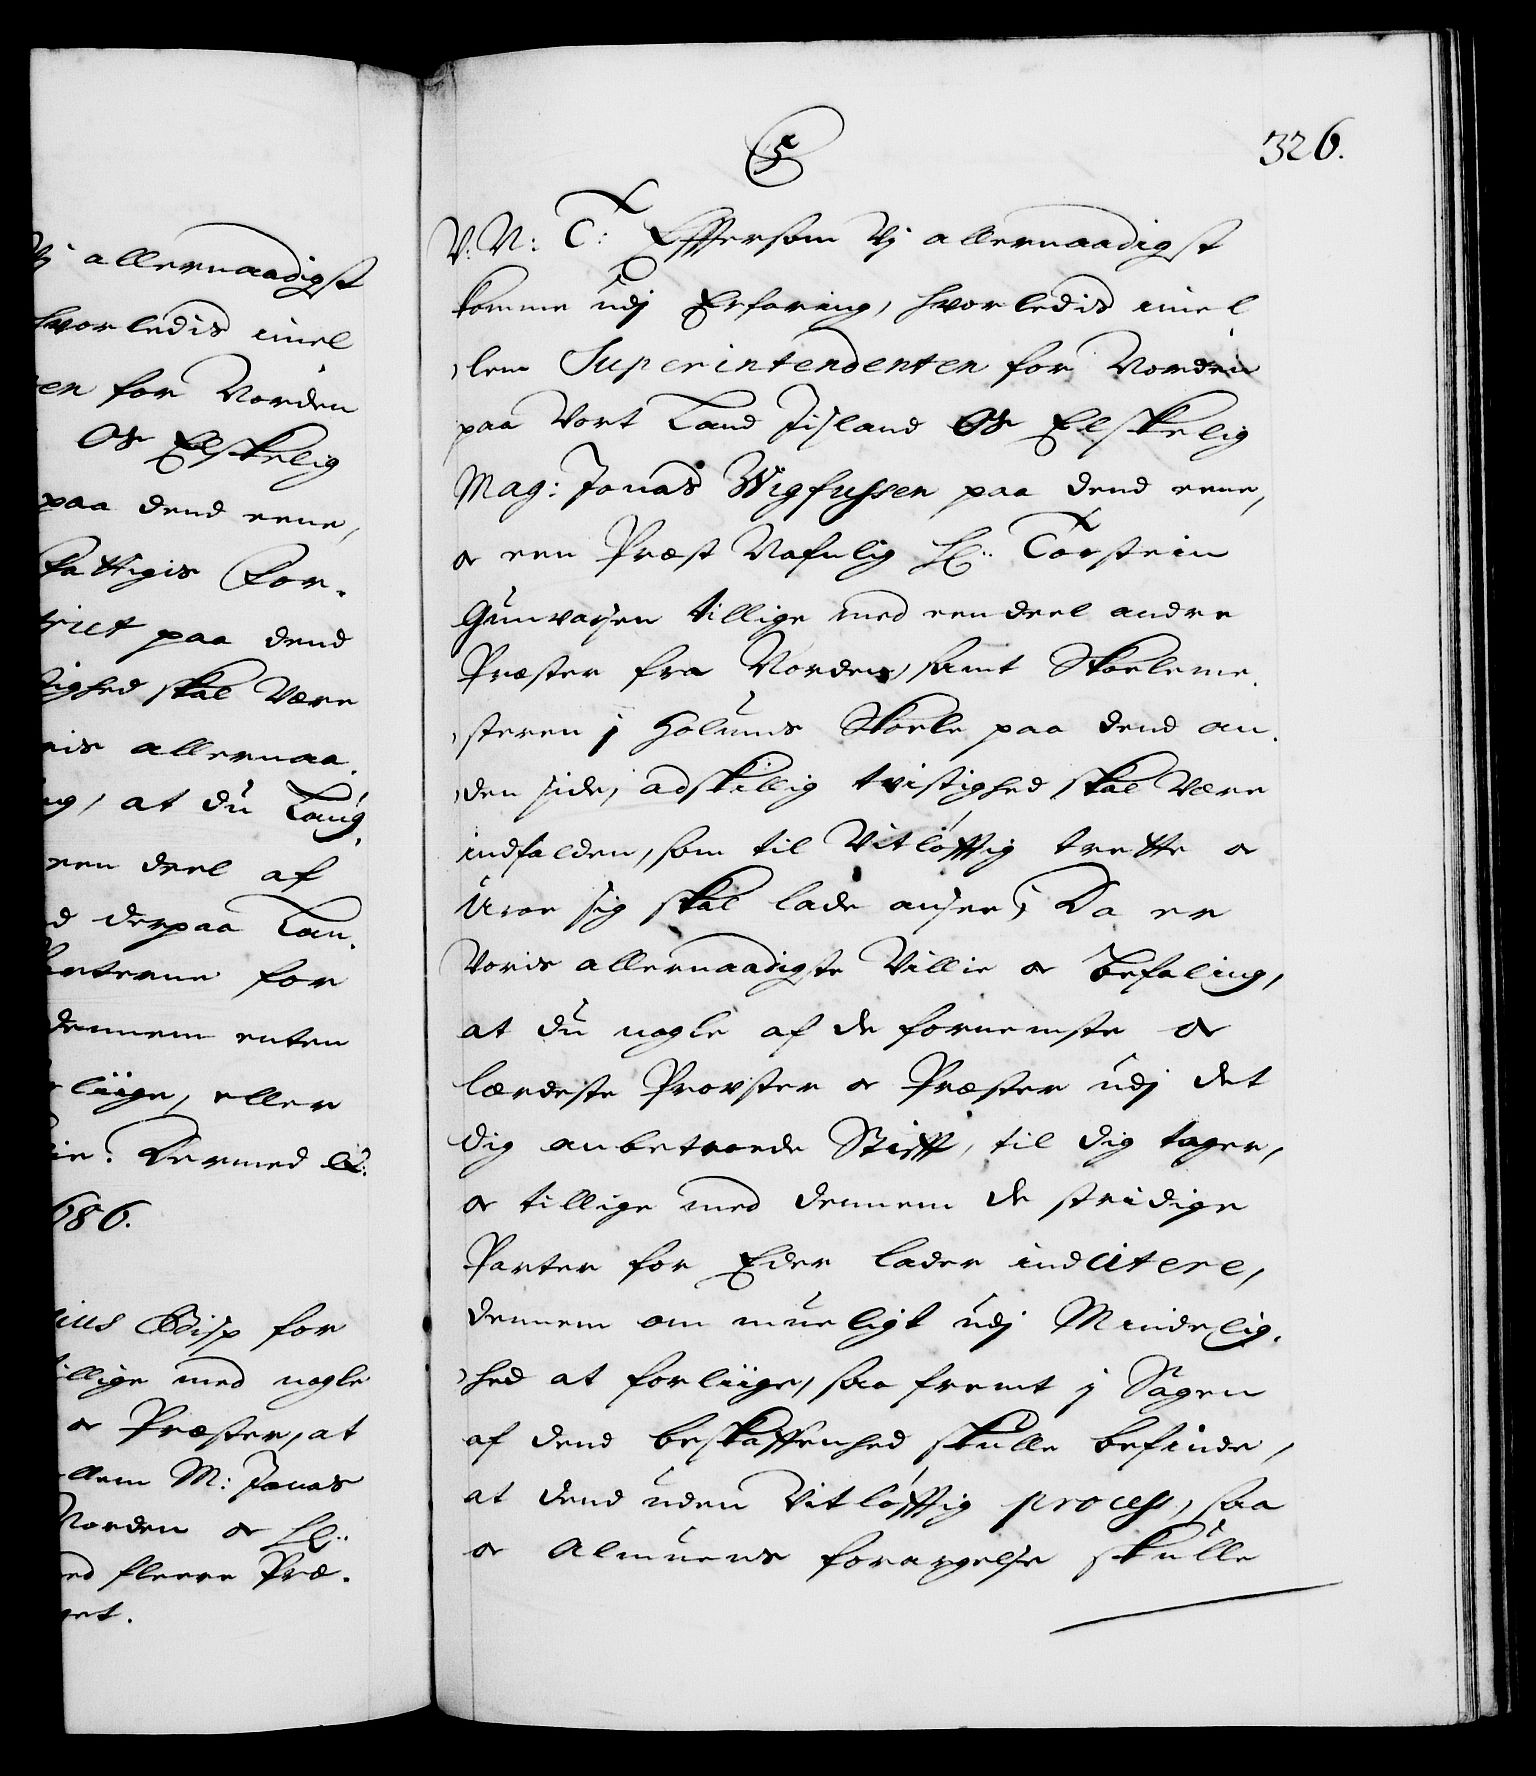 Vj allernaadigst
hvorledis imel
en for Norden
Os Elskelig
paa dend eene,
fattigis For-
paa dend
tighed skal Være
ris allernaa-
ng, at du Laug-
een deel af
d derpaa Lan-
Parterne for
dennem enten
liige, eller
ie. Dermed &c:
686.
Bisp for
illige med nogle
& Præster, at
llem M: Jonas
Norden & H:
ed fleere Præ-
get.
5
326.
V: N: T: Effterson Vj allernaadigst
komme udj Erfaring, hvorledis imel
lem Superintendenten for Norden
paa Vort Land Jisland Os Elskelig
Mag: Jonas Wigfussen paa dend eene,
& een Præst Nafnlig H: Torstein
Gunvarsen tillige med een deel andre
Præster fra Norden, samt Skoeleme-
steren j Holums Skoele paa dend an-
den side, adskillig tvistighed skal Være
indfalden, som til Vitløfftig trette &
Uroe sig skal lade ansee; Da er
Voris allernaadigste Villie & Befaling,
at du nogle af de fornemste &
lærdeste Provster & Præster udj det
dig anbetroede Stifft, til dig tager,
& tillige med dennem de stridige
Parter for Eder lader indcitere,
dennem om mueligt udj Mindelig-
hed at forliige, saa fremt j Sagen
af dend beskaffenhed skulle befinde,
at dend uden Vitløfftig process, saa
& Almuens forargelse skulle